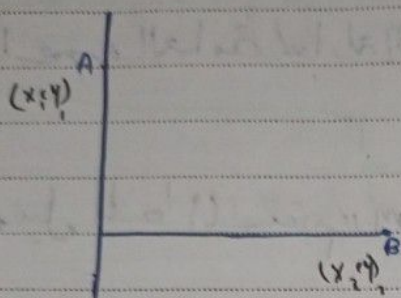 A
(x₁, y₁)
B
(x₂, y₂)